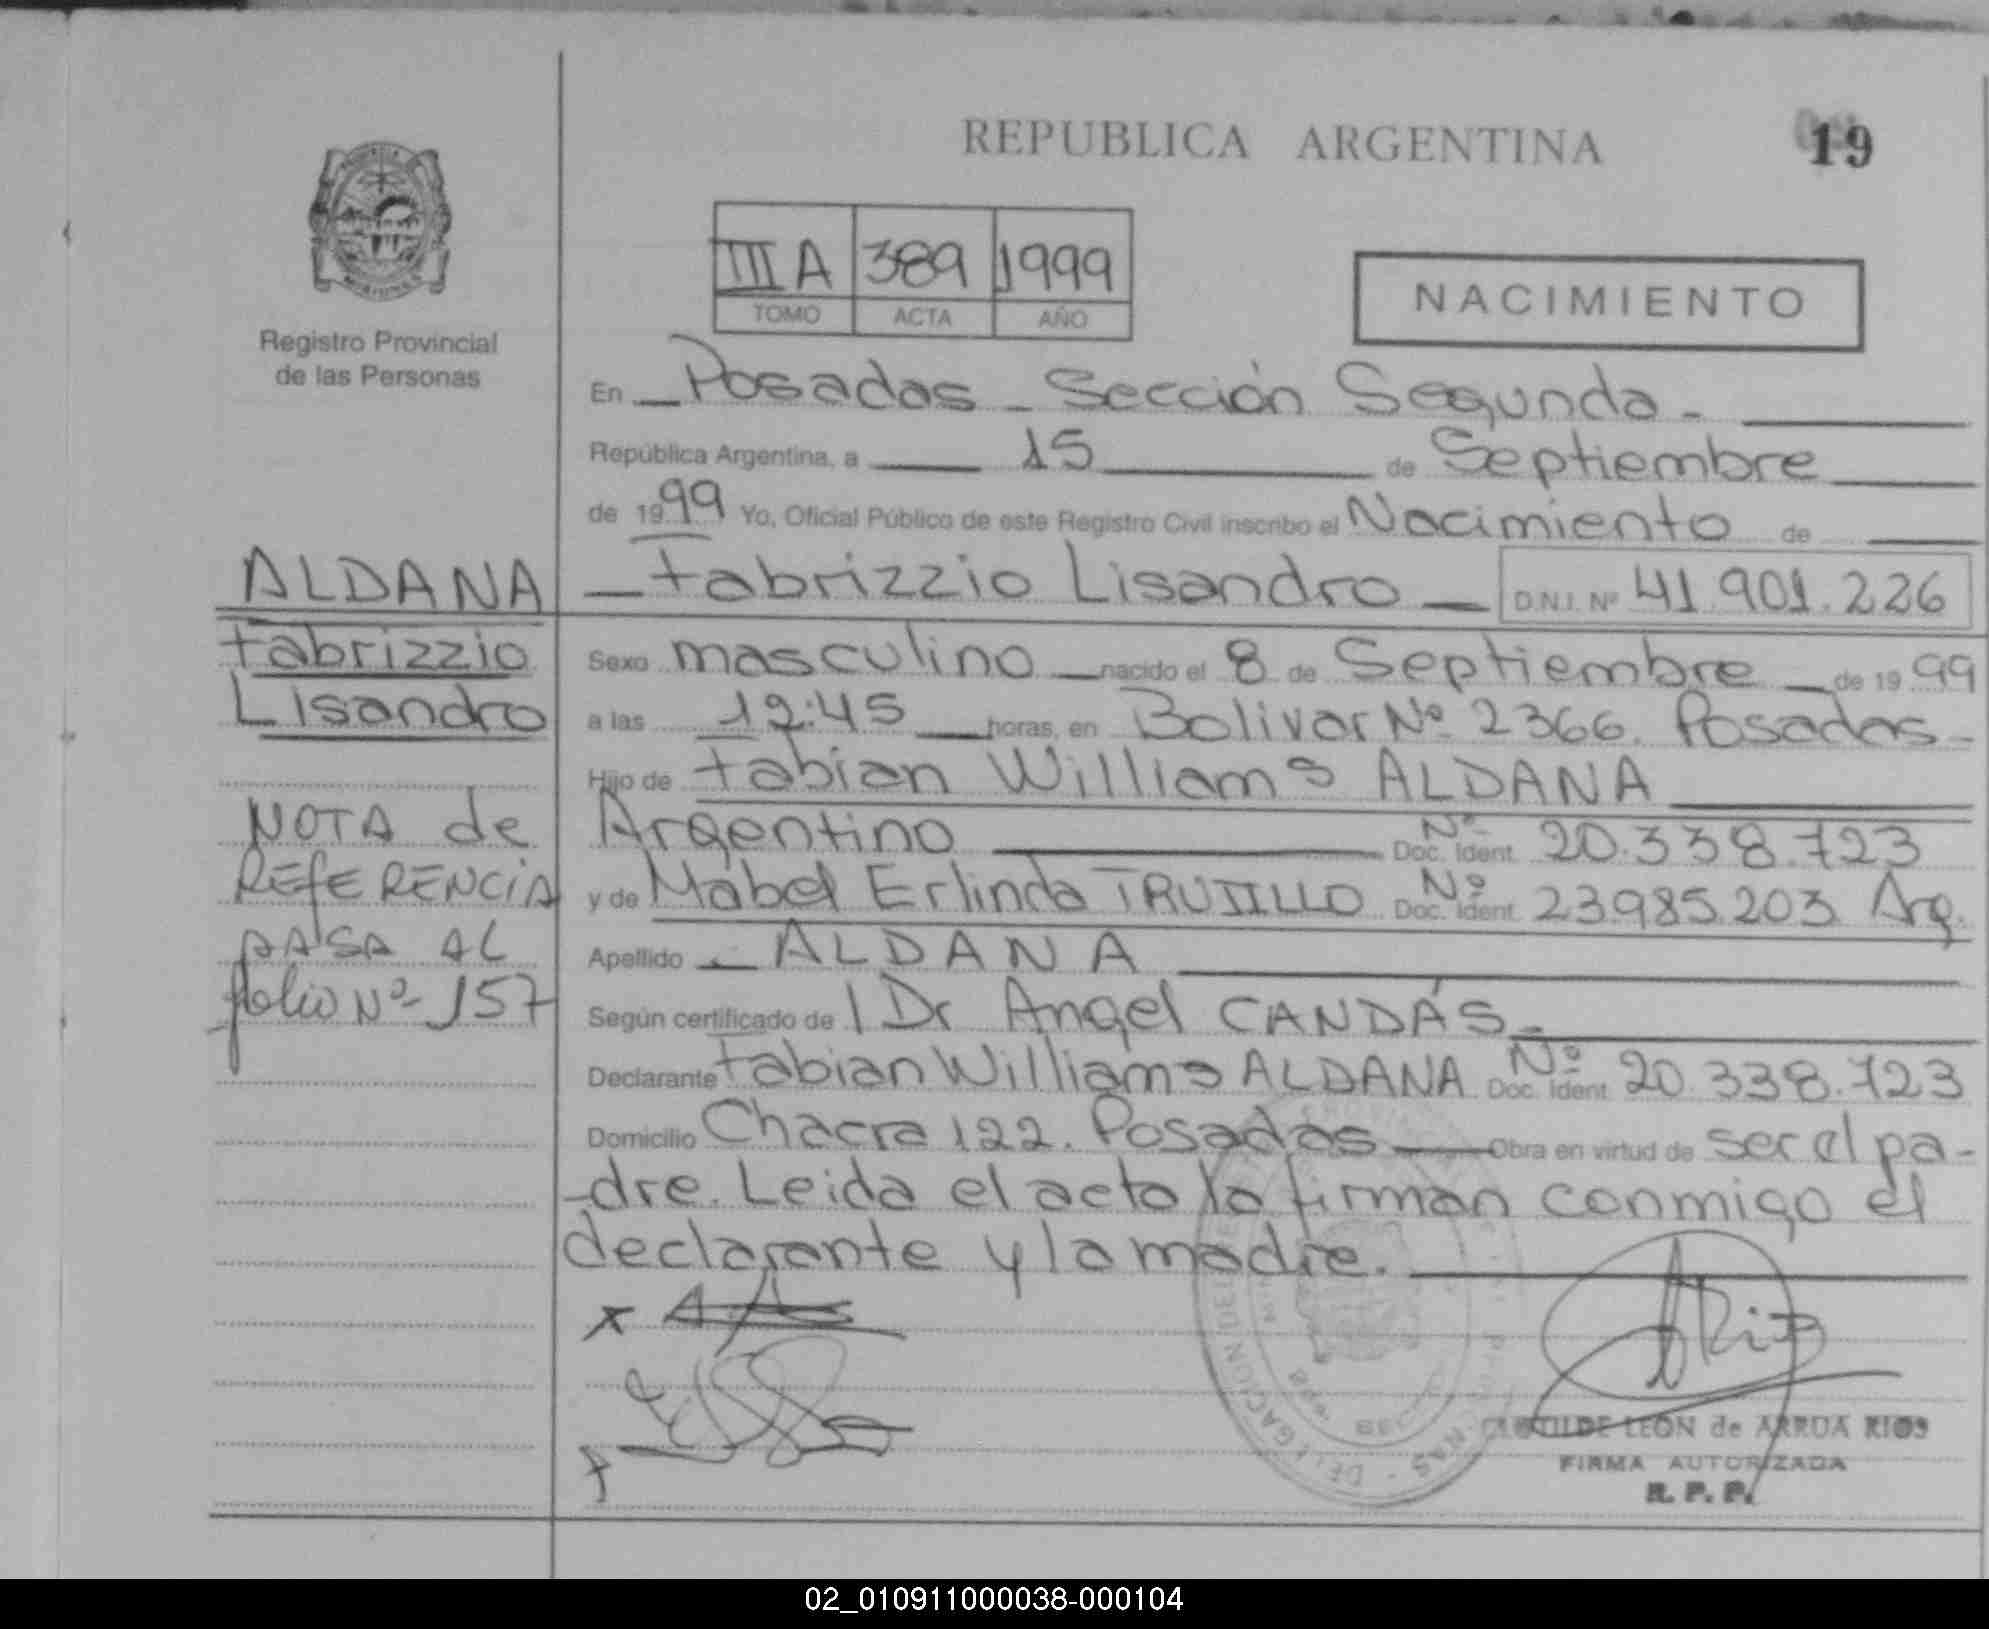 REPUBLICA ARGENTINA
19
Registro Provincial
de las Personas
III A 389 1999
TOMO ACTA AÑO
NACIMIENTO
En Posadas - Sección Segunda -
República Argentina, a 15 de Septiembre
de 1999 Yo, Oficial Público de este Registro Civil inscribo el Nacimiento de
Fabrizzio Lisandro D.N.I. Nº 41.901.226
ALDANA
Fabrizzio
Lisandro
NOTA de
REFERENCIA
PASA AL
folio Nº 157
Sexo masculino nacido el 8 de Septiembre de 1999
a las 12:45 horas, en Bolivar Nº 2366. Posadas-
Hijo de Fabian Williams ALDANA
Argentino Nº Doc. Ident. 20.338.723
y de Mabel Erlinda TRUJILLO Nº Doc. Ident. 23.985.203 Arg.
Apellido ALDANA
Según certificado de l Dr Angel CANDÁS-
Declarante Fabian Williams ALDANA Nº Doc. Ident. 20.338.723
Domicilio Chacra 122. Posadas Obra en virtud de ser el pa-
-dre. Leida el acta la firman conmigo el
declarante y la madre.
CLOTILDE LEON de ARRUA RIOS
FIRMA AUTORIZADA
R. P. P.
02_010911000038-000104